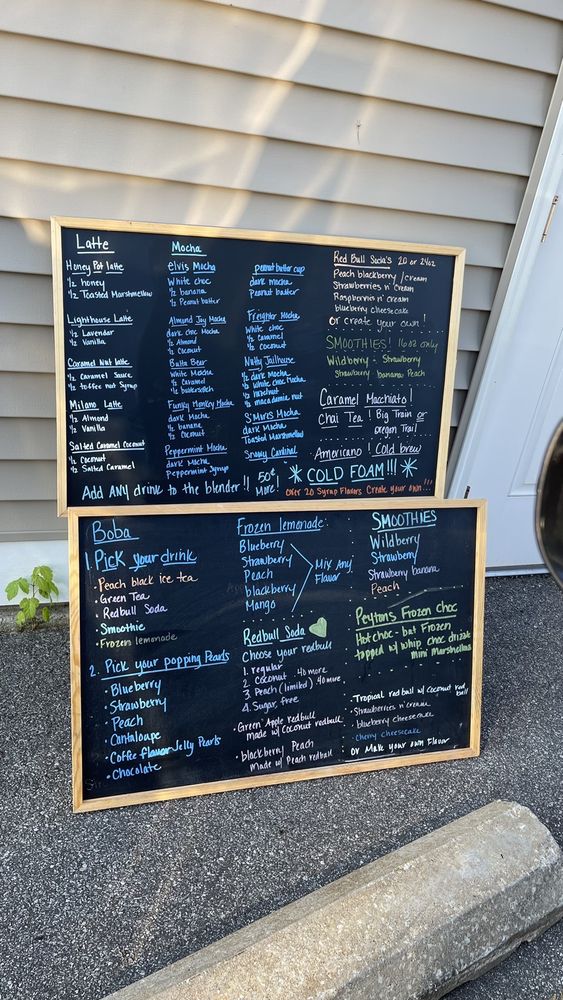 Latte
Honey Pot latte
½ honey
½ Toasted Marshmellow
Lighthouse Latte
½ Lavendar
½ Vanilla
Caramel Nut latte
½ Caramel Sauce
½ toffee nut Syrup
Milano Latte
½ Almond
½ Vanilla
Salted Caramel Coconut
½ Coconut
½ Salted Caramel
Mocha
elvis Mocha
White choc
½ banana
½ Peanut butter
Almond Joy Mocha
dark choc Mocha
½ Almond
½ Coconut
Butta Beer
White Mocha
½ Caramel
½ butterscotch
Funky Monkey Mocha
dark Mocha
½ banana
½ Coconut
Peppermint Mocha
dark Mocha
Peppermint Syrup
peanut butter cup
dark mocha
Peanut butter
Freighter Mocha
White choc
½ caramel
½ coconut
Nutty Jailhouse
½ dark mocha
½ white choc Mocha
½ hazelnut
½ macadamia nut
S'Mores Mocha
dark Mocha
Toasted Marshmallow
Snowy Cardinal
Red Bull Soda's 20 or 24oz
Peach blackberry /cream
Strawberries n' cream
Raspberries n' cream
blueberry cheesecake
or create your own!
SMOOTHIES! 16oz only
Wildberry - Strawberry
Strawberry banana Peach
Caramel Macchiato!
Chai Tea! Big Train or
oregon Trail
Americano! Cold brew
COLD FOAM!!!
Over 20 Syrup Flavors Create your own...
Add ANY drink to the blender!! 50¢
More!
Boba
1. Pick your drink
• Peach black ice tea
• Green Tea
• Redbull Soda
• Smoothie
• Frozen lemonade
2. Pick your popping Pearls
• Blueberry
• Strawberry
• Peach
• Cantaloupe
• Coffee flavor Jelly Pearls
• Chocolate
Frozen lemonade:
Blueberry
Strawberry
Peach
blackberry
Mango
Mix Any
Flavor
Redbull Soda
Choose your redbull
1. regular
2. Coconut .40 more
3. Peach (limited) .40 more
4. Sugar free
• Green Apple redbull
made w/ Coconut redbull
• blackberry Peach
made w/ Peach redbull
SMOOTHIES
Wildberry
Strawberry
Strawberry banana
Peach
Peytons Frozen choc
Hotchoc - but Frozen
topped w/ whip choc drizzle
mini Marshmellows
• Tropical red bull w/ Coconut red
bull
• Strawberries n' cream
• blueberry cheesecake
• cherry cheesecake
or Make your own Flavor